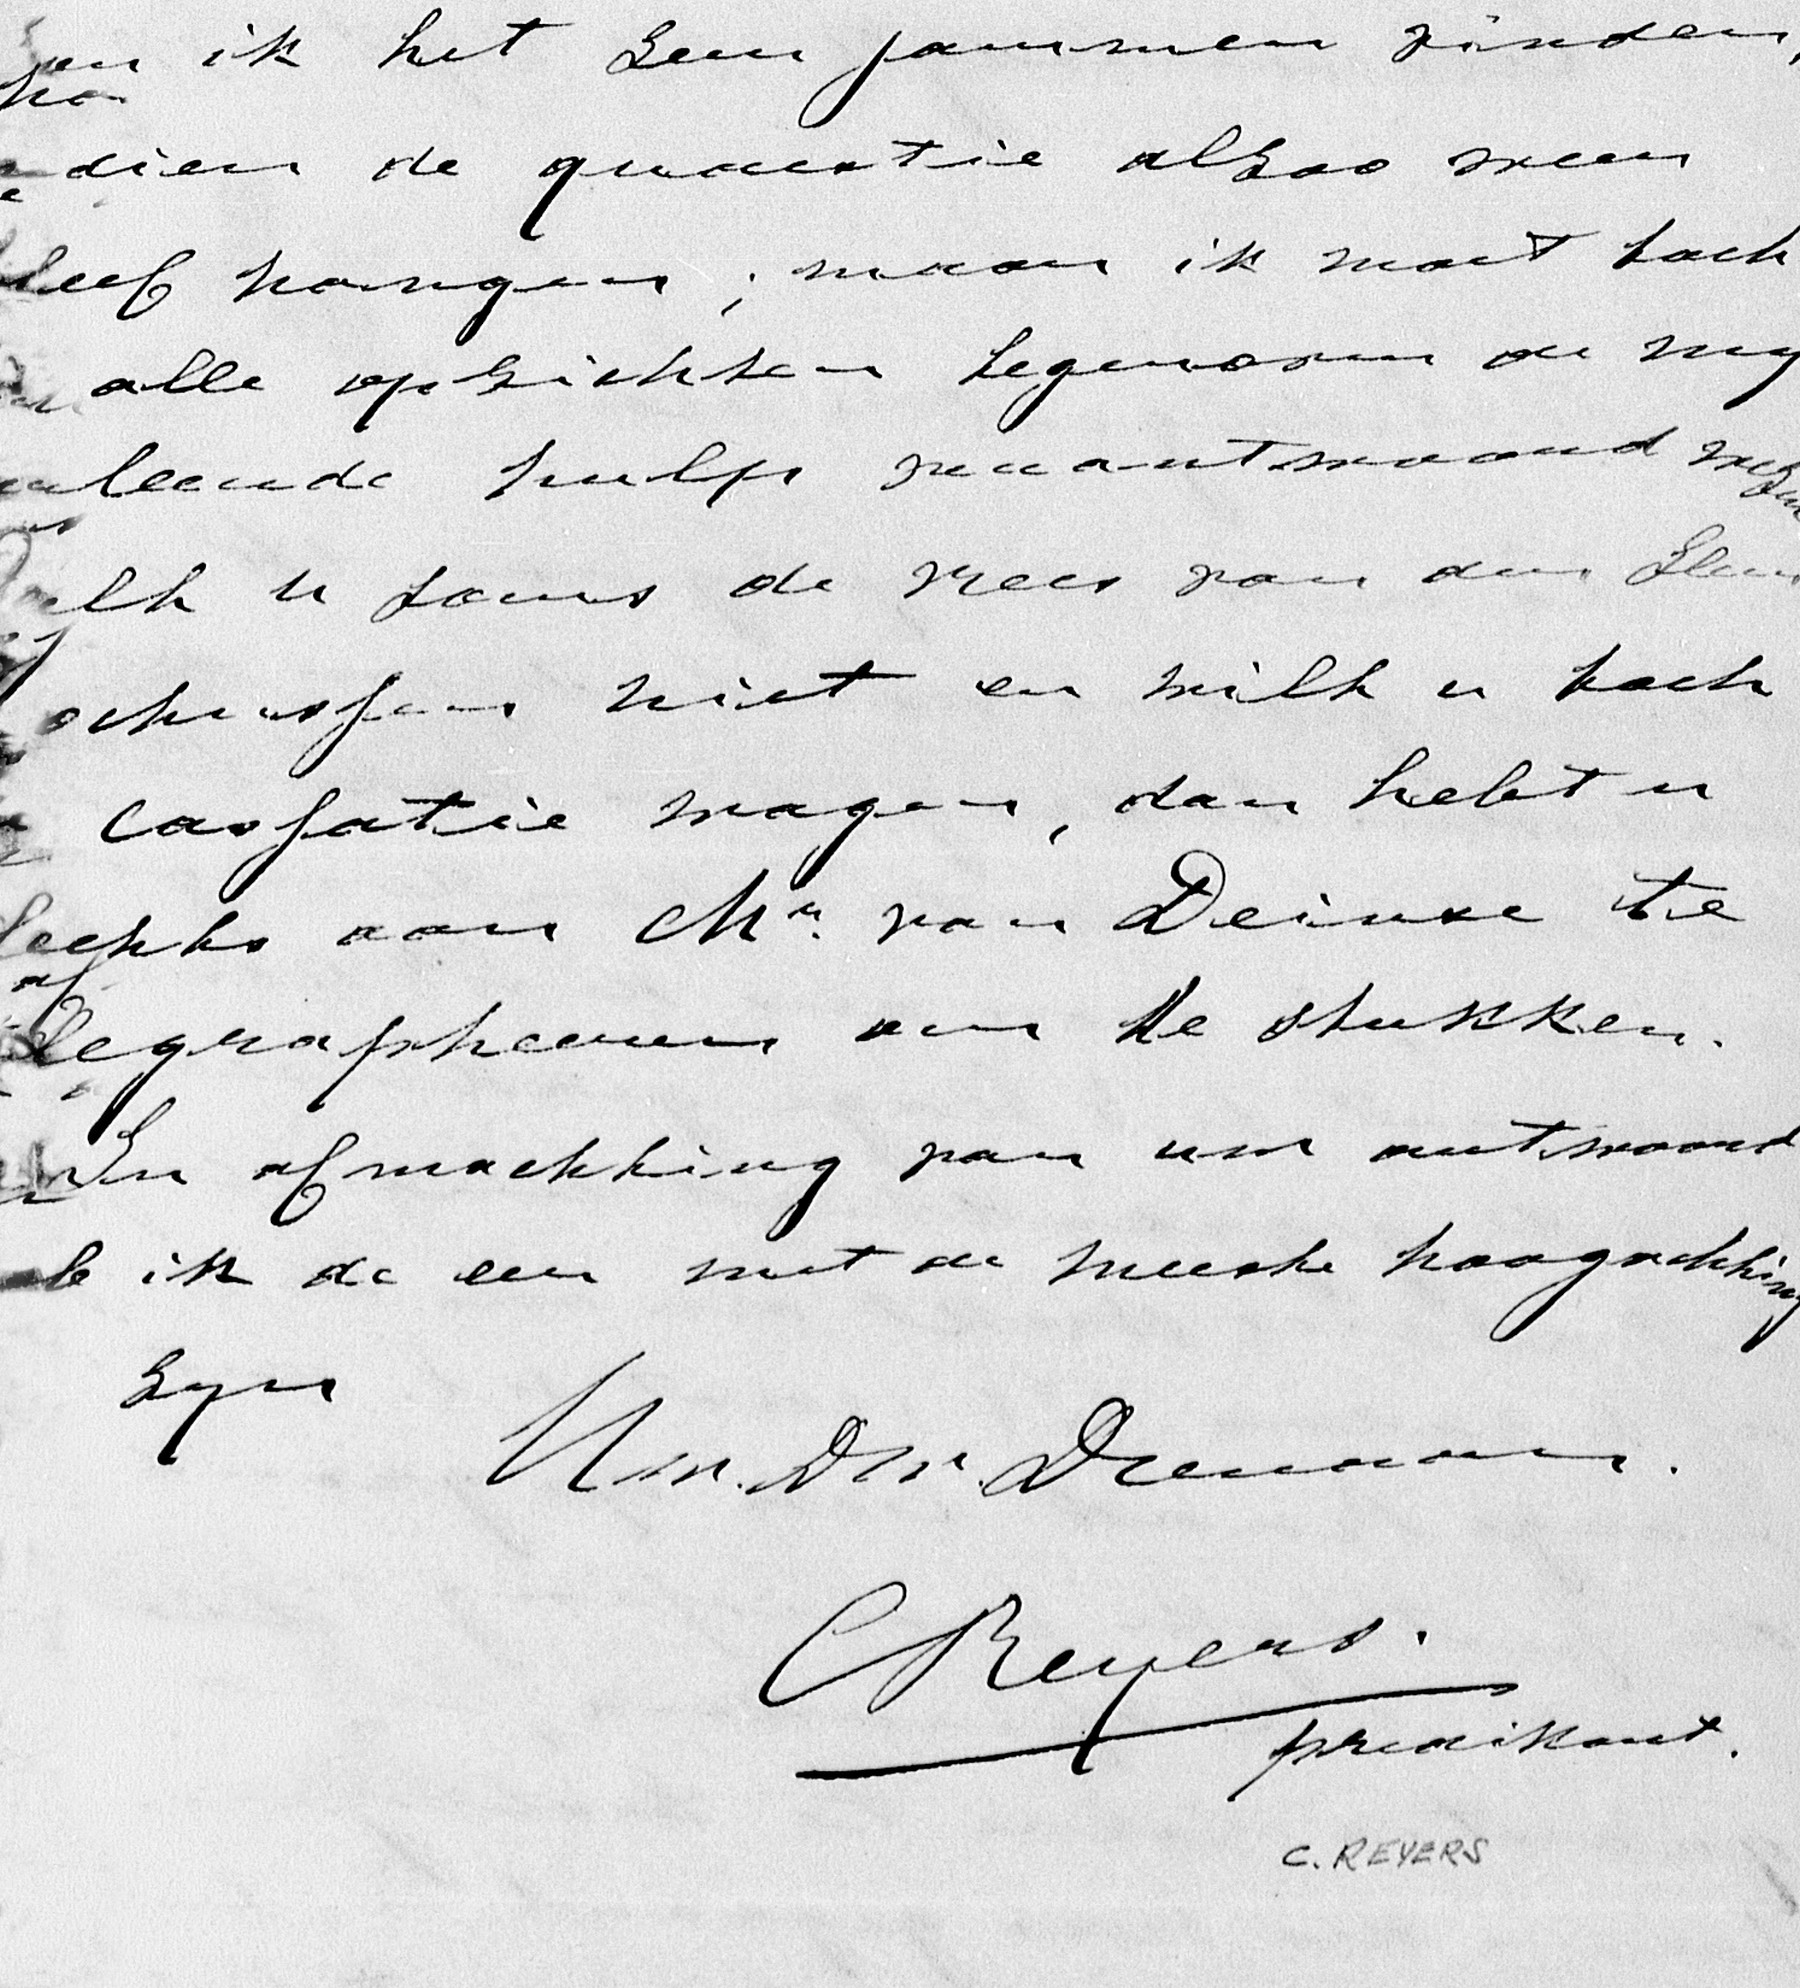 ik het zeer jammer vinden,
dien de quaestie alzoo weer
leef hangen; maar ik moet toch
alle opzichten tegenover de my
leende hulp verantwoord
u soms de vrees van den
niet en wilt u toch
cassatie wagen, dan hebt u
slechts aan Mr. van Deinse te
telegrapheeren om de stukken.
In afwachting van uw antwoord
heb ik de eer met de meeste hoogachting
zyn
Uw. Dw. Dienaar.
C Reyers.
predikant.
C. REYERS